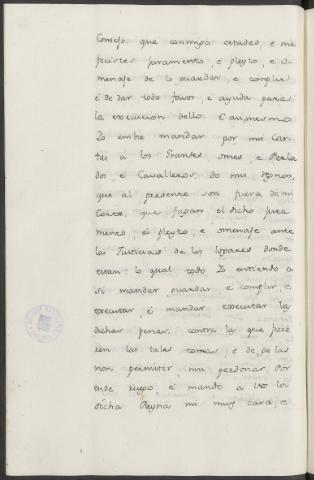 Consejo que conmigo estades, e me
fecistes juramento, é pleyto, e o-
menaje de lo guardar, e complir
é de dar todo favor, e ayuda para
la execucion dello. E asimesmo
Yo embie mandar por mi Car-
ta á los Grandes omes, e Perla
dos, e Cavalleros, de mis Regnos,
que al presente son fuera de mi
Corte, que fagan el dicho jura
mento, é pleyto, e omenaje ante
las Justicias de los logares donde
estan: lo qual todo Yo entiendo a
si mandar guardar e complir, e
executar, é mandar executar las
dichas penas, contra los que ficie
ren las tales tomas, e de, ge las
non permitir, nin perdonar. Por
ende ruego, é mando á vos la
dicha Reyna mi muy cara, e